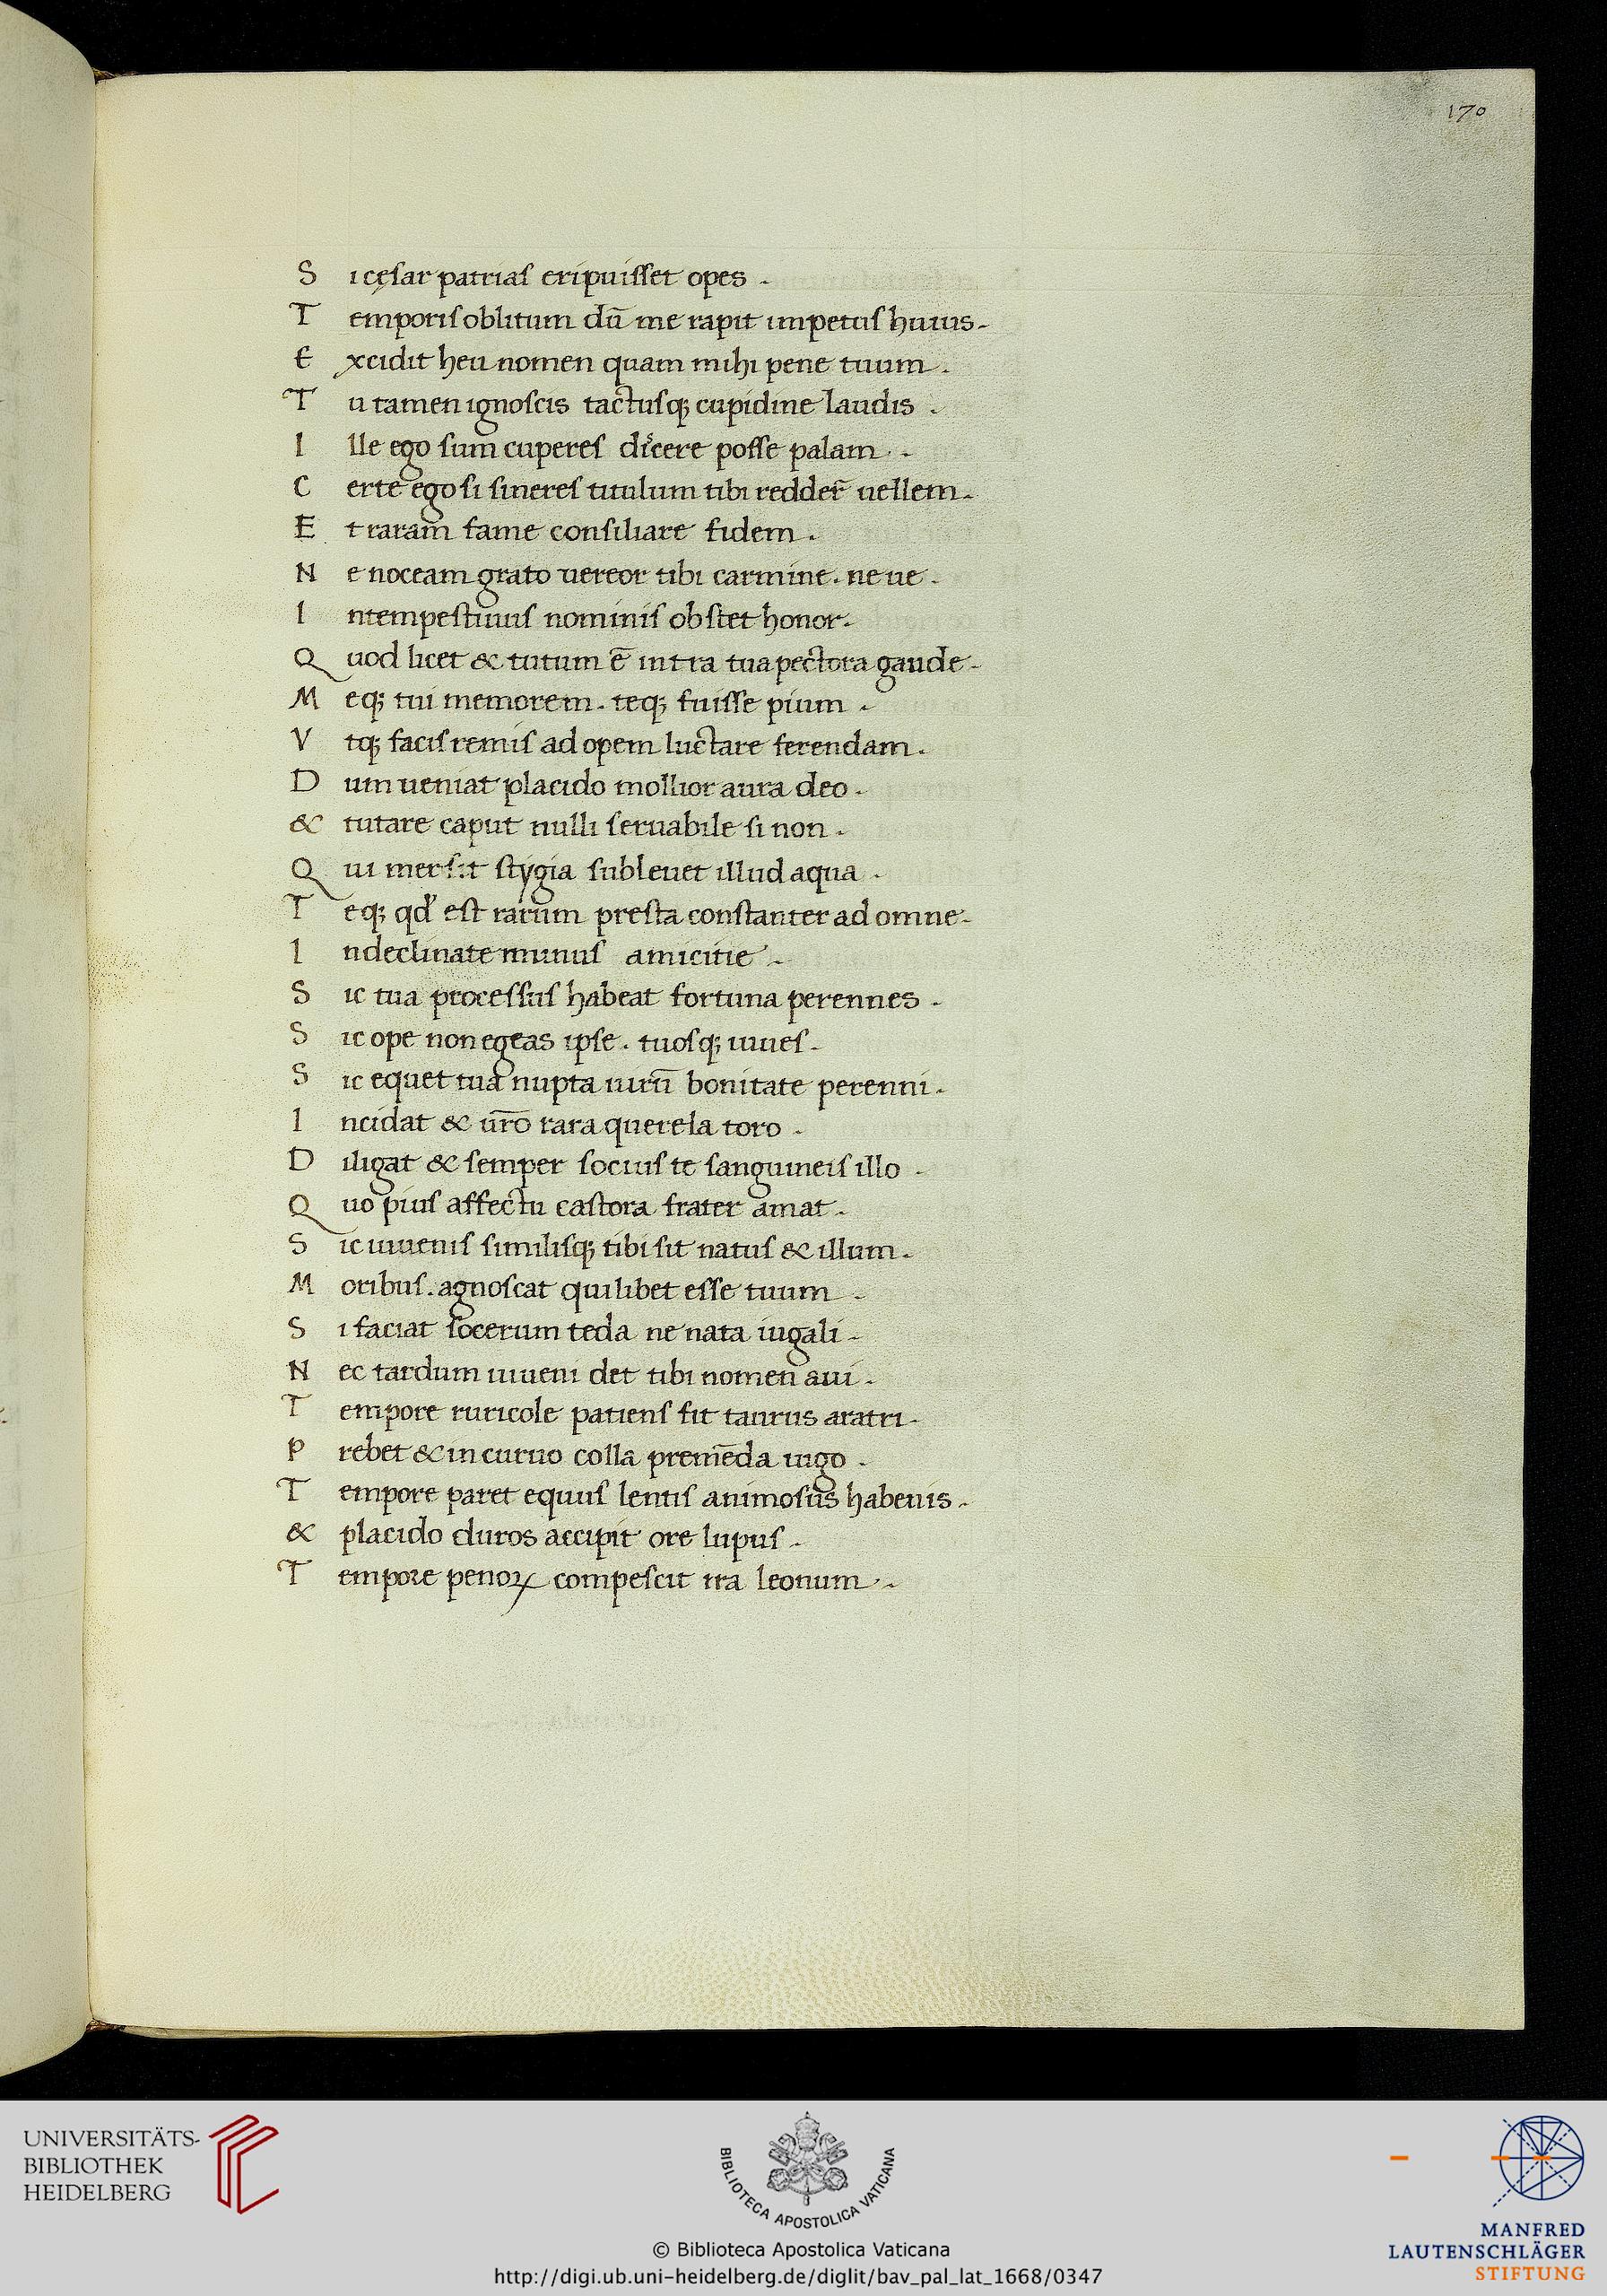 170
S i cęsar patrias eripuisset opes .
T emporis oblitum dū me rapit impetus huius .
E xcidit heu nomen quam mihi pene tuum .
T u tamen ignoscis tactusq; cupidine laudis .
I lle ego sum cuperes dicere posse palam .
C erte ego si sineres titulum tibi redder̄ uellem .
E t raram fame consiliare fidem .
N e noceam grato uereor tibi carmine . neue .
I ntempestiuus nominis obstet honor .
Q uod licet & tutum ē intra tua pectora gaude .
M eq; tui memorem . teq; fuisse pium .
V tq; facis remis ad opem luctare ferendam .
D um ueniat placido mollior aura deo .
& tutare caput nulli seruabile si non .
Q ui mersit stygia subleuet illud aqua .
T eq; qd' est rarum presta constanter ad omne .
I ndeclinate munus amicitie .
S ic tua processus habeat fortuna perennes .
S ic ope non egeas ipse . tuosq; iuues .
S ic equet tua nupta uirū bonitate perenni .
I ncidat & ūro rara querela toro .
D iligat & semper socius te sanguineis illo .
Q uo pius affectu castora frater amat .
S ic iuuenis similisq; tibi sit natus & illum .
M oribus . agnoscat quilibet esse tuum .
S i faciat socerum teda ne nata iugali .
N ec tardum iuueni det tibi nomen aui .
T empore ruricole patiens fit taurus aratri .
P rebet & incuruo colla premēda iugo .
T empore paret equus lentis animosus habenis .
& placido duros accipit ore lupus .
T empore penoꝝ compescit ira leonum .
UNIVERSITÄTS-
BIBLIOTHEK
HEIDELBERG
BIBLIOTECA APOSTOLICA VATICANA
© Biblioteca Apostolica Vaticana
http://digi.ub.uni-heidelberg.de/diglit/bav_pal_lat_1668/0347
MANFRED
LAUTENSCHLÄGER
STIFTUNG